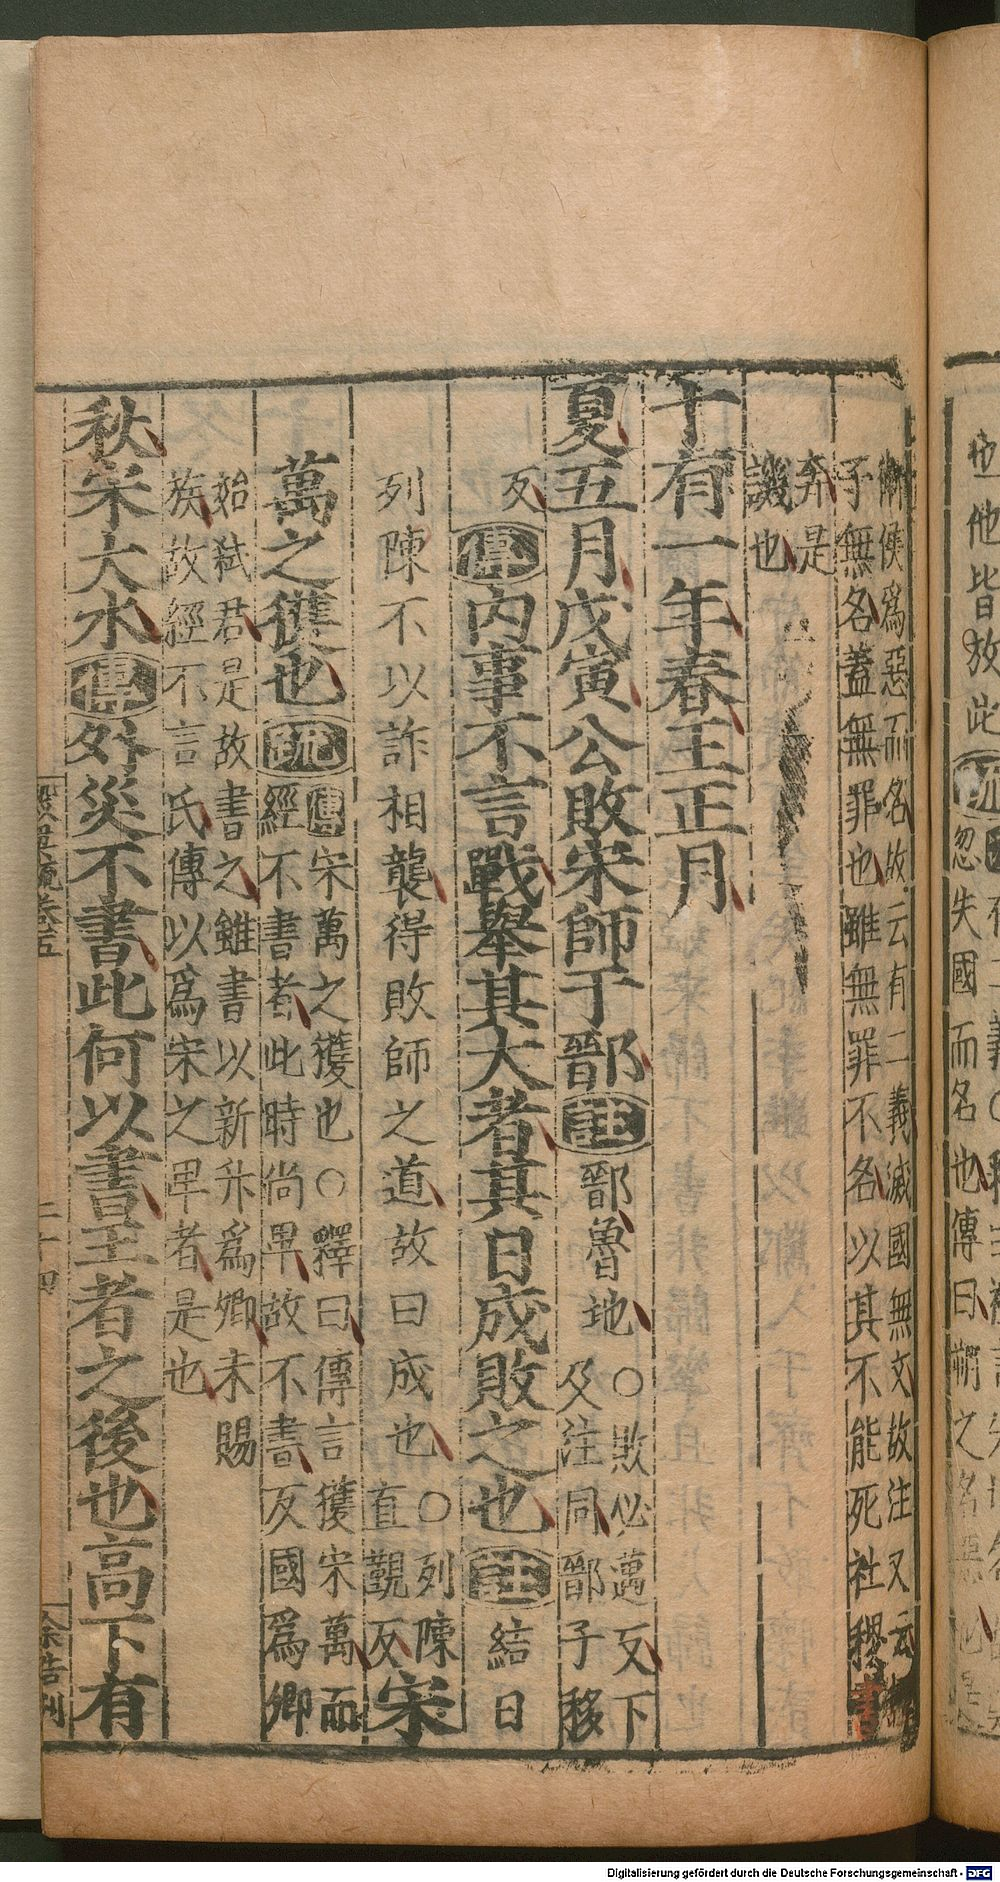 衛侯為惡而名故云有二義滅國無文故注又云
子無名蓋無罪也雖無罪不名以其不能死社稷書
奔是
譏也
十有一年春王正月
夏五月戊寅公敗宋師于鄑註鄑魯地○敗必邁反下及注同鄑子移
反傳內事不言戰舉其大者其日成敗之也註結日
列陳不以詐相襲得敗師之道故曰成也○列陳直覲反宋
萬之獲也疏傳宋萬之獲也○釋曰傳言獲宋萬而
經不書者此時尚卑故不書反國為卿
始弒君是故書之雖書以新升為卿未賜
族故經不言氏傳以為宋之卑者是也
秋宋大水傳外災不書此何以書王者之後也高下有
榖梁疏卷五
二十四
余浩刊
也他皆放此疏
忽失國而名也傳曰朔之名惡
Digitalisierung gefördert durch die Deutsche Forschungsgemeinschaft - DFG